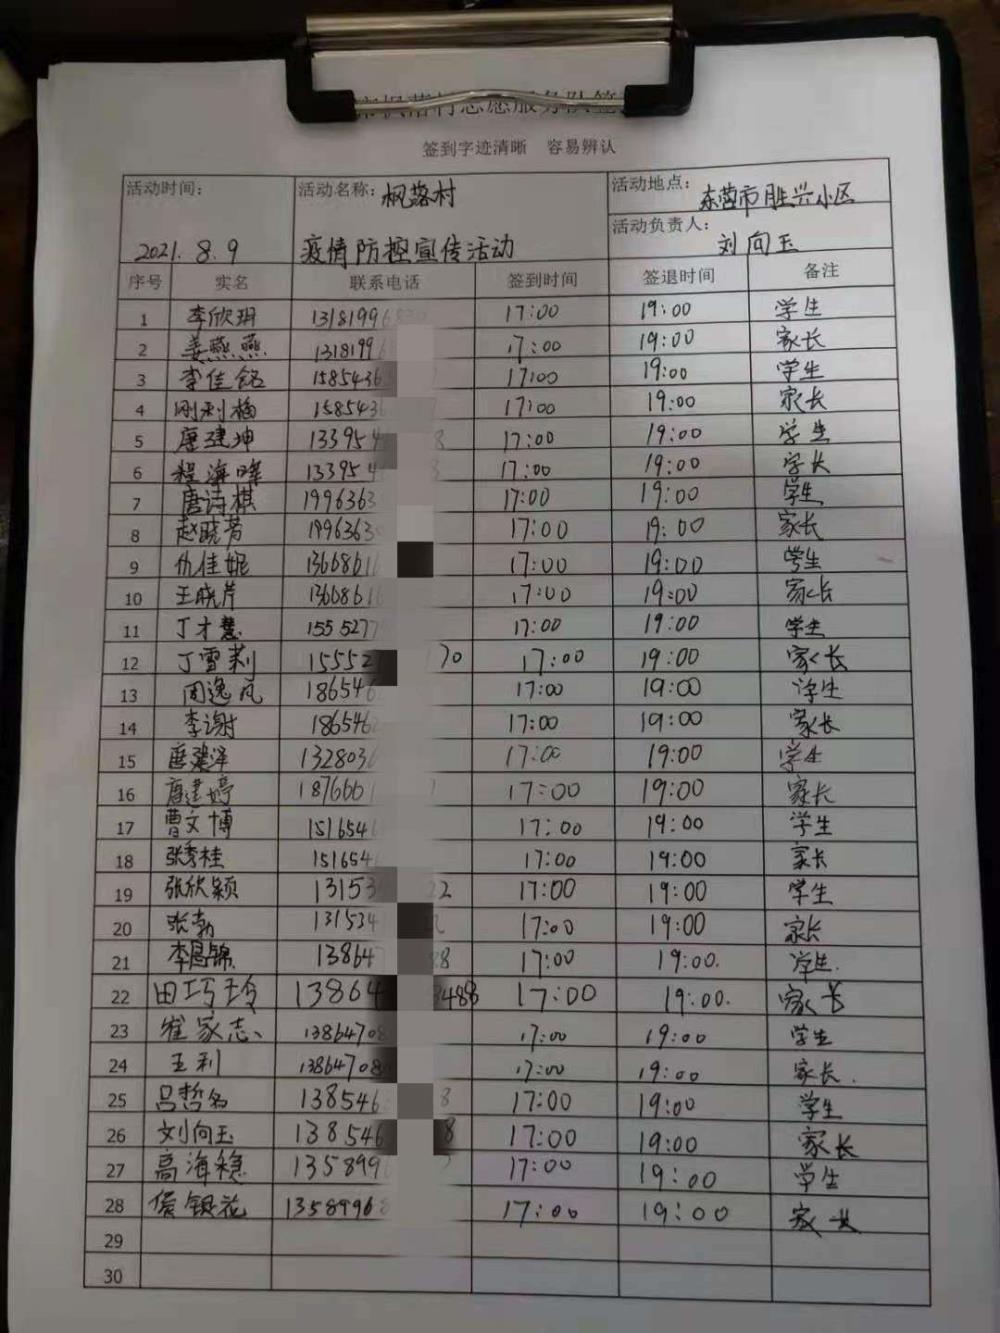 枫落村志愿服务队签
签到字迹清晰 容易辨认
活动时间: 2021.8.9 活动名称: 枫落村 疫情防控宣传活动 活动地点: 东营市胜兴小区
活动负责人: 刘向玉
序号 实名 联系电话 签到时间 签退时间 备注
1 李欣玥 13181996 17:00 19:00 学生
2 姜燕燕 1318199 17:00 19:00 家长
3 李佳铭 1585436 17:00 19:00 学生
4 刚利梅 158543 17:00 19:00 家长
5 唐建坤 13395 8 17:00 19:00 学生
6 程海峰 13395 17:00 19:00 学长
7 唐诗棋 199636 17:00 19:00 学生
8 赵晓芳 199636 17:00 19:00 家长
9 仇佳妮 1366861 17:00 19:00 学生
10 王晓芹 1366861 17:00 19:00 家长
11 丁才慧 1555277 17:00 19:00 学生
12 丁雪莉 15552 70 17:00 19:00 家长
13 周逸凡 186546 17:00 19:00 学生
14 李谢 186546 17:00 19:00 家长
15 唐建泽 132803 17:00 19:00 学生
16 唐建婷 187666 17:00 19:00 家长
17 曹文博 1516546 17:00 19:00 学生
18 张秀桂 151654 17:00 19:00 家长
19 张欣颖 13153 22 17:00 19:00 学生
20 张勃 131534 17:00 19:00 家长
21 李昌锦 13864 88 17:00 19:00. 学生.
22 田巧玲 13864 3488 17:00 19:00. 家长
23 崔家志 13864708 17:00 19:00 学生
24 王利 13864708 17:00 19:00 家长.
25 吕哲名 138546 8 17:00 19:00 学生
26 刘向玉 138546 8 17:00 19:00 家长
27 高海稳 135899 17:00 19:00 学生
28 侯银花 13589968 17:00 19:00 家长
29
30